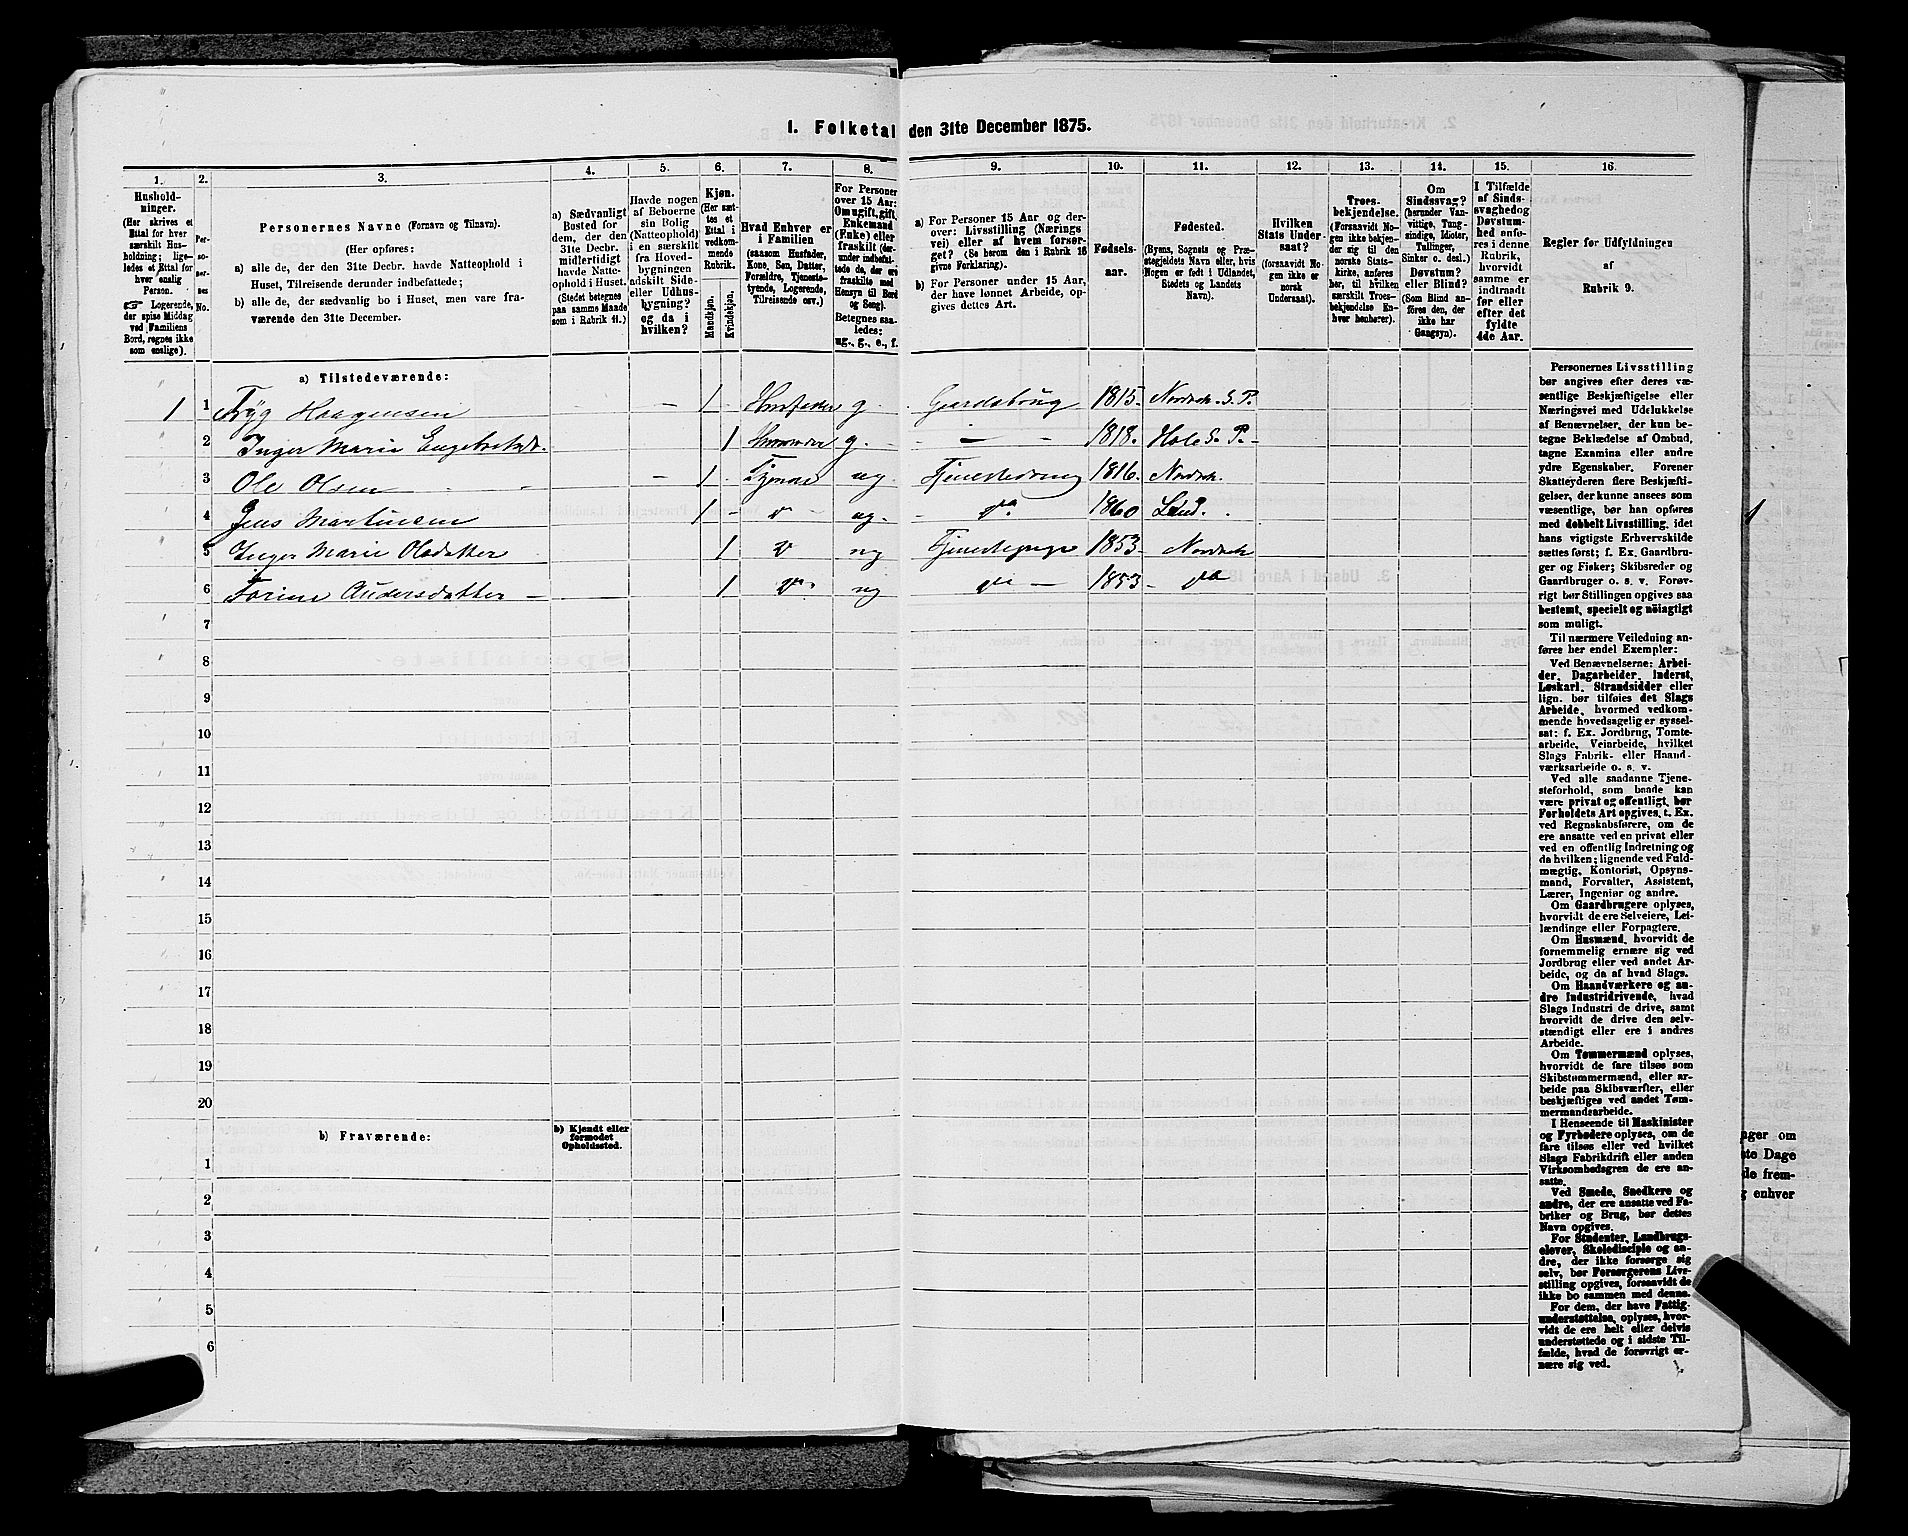 1. Folketal den 31te December 1875.
1. 2. 3. 4. 5. 6. 7. 8. 9. 10. 11. 12. 13. 14. 15. 16.
Hushold-
ninger.
(Her skrives et
Ettal for hver
særskilt Hus-
holdning; lige-
ledes et Ettal for
hver enslig
Person.
☞ Logerende,
der spise Middag
ved Familiens
Bord, regnes ikke
som enslige).
Per-
so-
ner-
nes
No.
Personernes Navne (Fornavn og Tilnavn).
(Her opføres:
a) alle de, der den 31te Decbr. havde Natteophold i
Huset, Tilreisende derunder indbefattede;
b) alle de, der sædvanlig bo i Huset, men vare fra-
værende den 31te December.
a) Sædvanligt
Bosted for
dem, der den
31te Decbr.
midlertidigt
havde Natte-
ophold i Huset.
(Stedet betegnes
paa samme Maade
som i Rubrik 11.)
Havde nogen
af Beboerne
sin Bolig
(Natteophold)
i en særskilt
fra Hoved-
bygningen
adskilt Side-
eller Udhus-
bygning?
og da i
hvilken?
Kjøn.
(Her sæt-
tes et
Ettal i
vedkom-
mende
Rubrik.
Mandkjøn.
Kvindekjøn.
Hvad Enhver er
i Familien
(saasom Husfader,
Kone, Søn, Datter,
Forældre, Tjeneste-
tyende, Logerende,
Tilreisende osv.)
For Personer
over 15 Aar:
Om ugift, gift,
Enkemand
(Enke) eller
fraskilt (der-
under indbefat-
tede de, der ere
fraskilte med
Hensyn til Bord
og Seng).
Betegnes saa-
ledes:
ug., g., e., f.
a) For Personer 15 Aar og der-
over: Livsstilling (Nærings
vei) eller af hvem forsør-
get? (Se herom den i Rubrik 16
givne Forklaring).
b) For Personer under 15 Aar,
der have lønnet Arbeide, op-
gives dettes Art.
Fødsels-
aar.
Fødested.
(Byens, Sognets og Præ-
stegjeldets Navn eller, hvis
Nogen er født i Udlandet,
Stedets og Landets
Navn).
Hvilken
Stats Under-
saat?
(forsaavidt No-
gen ikke er
norsk
Undersaat).
Troes-
bekjendelse.
(Forsaavidt No-
gen ikke bekjen-
der sig til den
norske Stats-
kirke, anføres
her, til hvilken
særskilt Troes-
bekjendelse En-
hver henhører).
Om
Sindssvag?
(herunder Van-
vittige, Tung-
sindige, Idioter,
Tullinger,
Sinker o. desl.)
Døvstum?
eller Blind?
(Som Blind an-
føres den, der
ikke har
Gangsyn).
I Tilfælde
af Sinds-
svaghed og
Døvstum-
hed anfø-
res i denne
Rubrik,
hvorvidt
samme er
indtraadt
før eller
efter det
fyldte
4de Aar.
Regler for Udfyldningen
af
Rubrik 9.
a) Tilstedeværende:
1 1 Tryg Haagensen - 1 - Husfader g - Gaardsbrug 1815 - Nordreh. S. P.
2 Inger Marie Engebretsdt. 1 Husmoder g. - - 1818 - Hole S. P. -
3 Ole Olsen - 1 - Tyende ug Tjenestedreng 1816 - Nordreh.
4 Jens Martinsen 1 - do - ug. - do. 1860 Land.
5 Inger Marie Olsdatter 1 do ug Tjenestepige 1853 - Nordreh
6 Torine Andersdatter - 1 do. ug do - 1853 - do
7
8
9
10
11
12
13
14
15
16
17
18
19
20
b) Fraværende:
b) Kjendt eller
formodet
Opholdssted.
1
2
3
4
5
6
Personernes Livsstilling
bør angives efter deres væ-
sentlige Beskjæftigelse eller
Næringsvei med Udelukkelse
af Benævnelser, der kun be-
tegne Beklædelse af Ombud,
tagne Examina eller andre
ydre Egenskaber. Forener
Skatteyderen flere Beskjæfti-
gelser, der kunne ansees som
væsentlige, bør han opføres
med dobbelt Livsstilling, idet
hans vigtigste Erhvervskilde
sættes først; f. Ex. Gaardbru-
ger og Fisker; Skibsreder og
Gaardbruger o. s. v. Forøv-
rigt bør Stillingen opgives saa
bestemt, specielt og nöiagtigt
som muligt.
Til nærmere Veiledning an-
føres her endel Exempler:
Ved Benævnelserne: Arbei-
der, Dagarbeider, Inderst,
Løskarl, Strandsidder eller
lign. bør tilføies det Slags
Arbeide, hvormed vedkom-
mende hovedsagelig er syssel-
sat: f. Ex. Jordbrug, Tomte-
arbeide, Veiarbeide, hvilket
Slags Fabrik- eller Haand-
værksarbeide o. s. v.
Ved alle saadanne Tjene-
steforhold, som baade kan
være privat og offentligt, bør
Forholdets Art opgives, t. Ex.
ved Regnskabsførere, om de
ere ansatte ved en privat eller
ved en offentlig Indretning og
da hvilken; lignende ved Fuld-
mægtig, Kontorist, Opsyns-
mand, Forvalter, Assistent,
Lærer, Ingeniør og andre.
Om Gaardbrugere oplyses,
hvorvidt de ere Selveiere, Lei-
lændinge eller Forpagtere.
Om Husmænd, hvorvidt de
fornemmelig ernære sig ved
Jordbrug eller ved andet Ar-
beide, og da af hvad Slags.
Om Haandværkere og an-
dre Industridrivende, hvad
Slags Industri de drive, samt
hvorvidt de drive den selv-
stændigt eller ere i andres
Arbeide.
Om Tømmermænd oplyses,
hvorvidt de fare tilsøs som
Skibstømmermænd, eller ar-
beide paa Skibsværfter, eller
beskjæftiges ved andet Tøm-
mermandsarbeide.
I Henseende til Maskinister
og Fyrbødere oplyses, om de
fare tilsøs eller ved hvilket
Slags Fabrikdrift eller anden
Virksomhedsgren de ere an-
satte.
Ved Smede, Snedkere og
andre, der ere ansatte ved Fa-
briker og Brug, bør dettes
Navn opgives.
For Studenter, Landbrugs-
elever, Skoledisciple og an-
dre, der ikke forsørge sig
selv, bør Forsørgerens Livs-
stilling opgives, forsaavidt de
ikke bo sammen med denne.
For dem, der have Fattig-
understøttelse, oplyses, hvor-
vidt de ere helt eller delvis
understøttede og i sidste Til-
fælde, hvad de forøvrigt er-
nære sig ved.
ger om
te Dage
de frem-
enhver